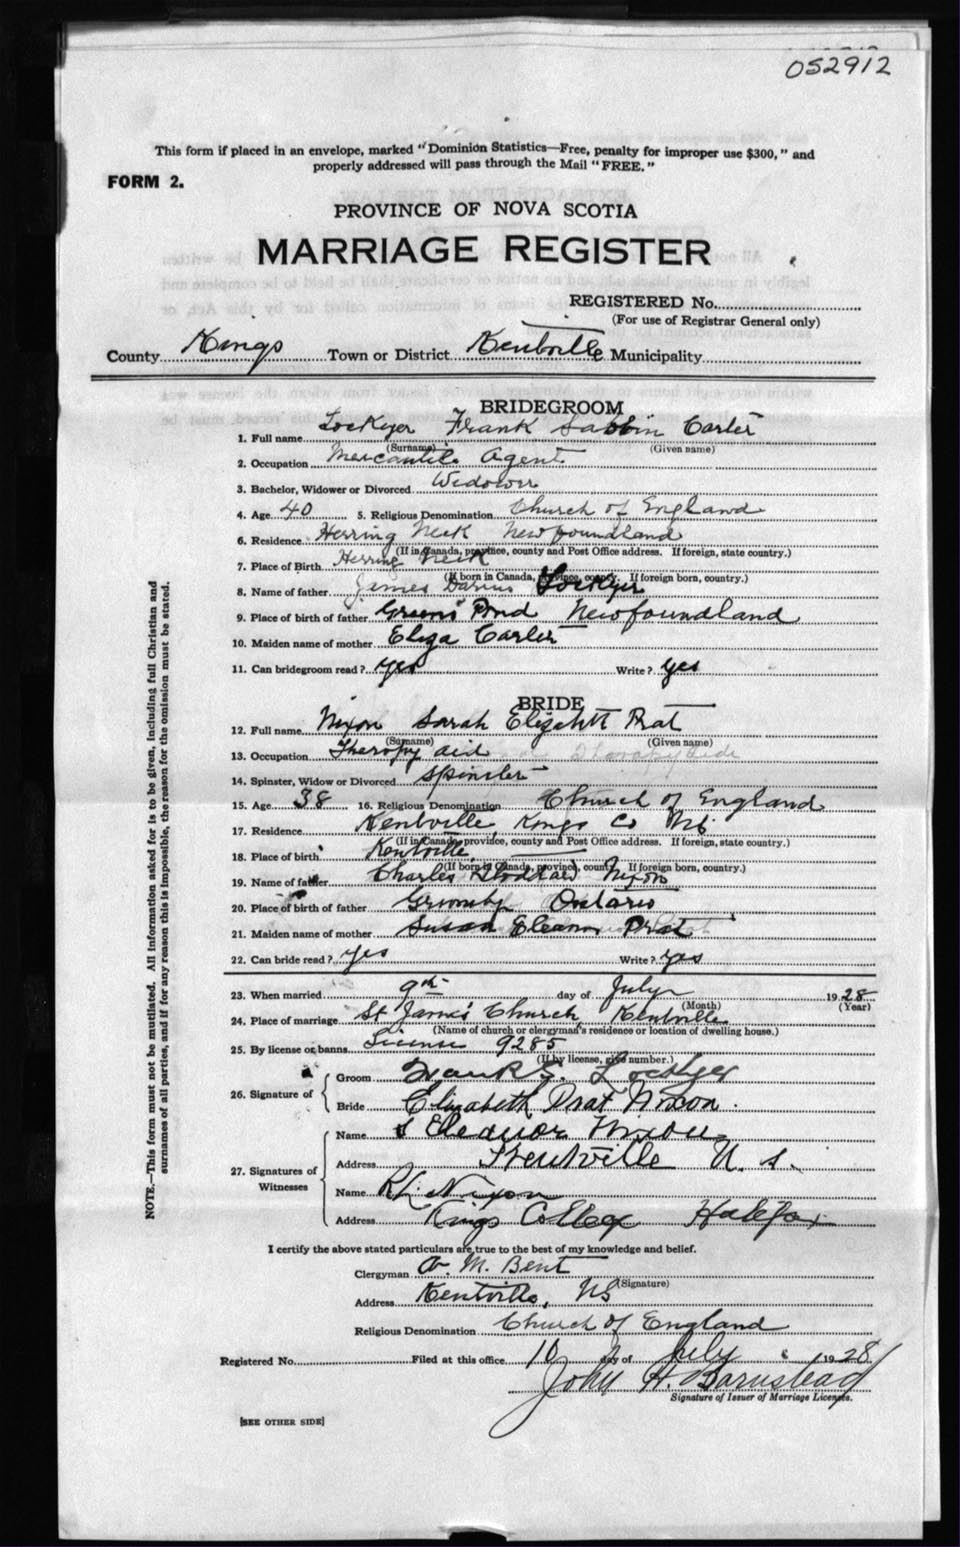 052912
This form if placed in an envelope, marked "Dominion Statistics—Free, penalty for improper use $300," and
properly addressed will pass through the Mail "FREE."
FORM 2.
PROVINCE OF NOVA SCOTIA
MARRIAGE REGISTER
REGISTERED No.
(For use of Registrar General only)
County Kings Town or District Kentville Municipality
BRIDEGROOM
1. Full name Lockyer Frank Sabbin Carter
(Surname) (Given name)
2. Occupation Mercantile Agent
3. Bachelor, Widower or Divorced Widower
4. Age 40 5. Religious Denomination Church of England
6. Residence Herring Neck Newfoundland
(If in Canada, province, county and Post Office address. If foreign, state country.)
7. Place of Birth Herring Neck
(If born in Canada, province, county. If foreign born, country.)
8. Name of father James Darius Lockyer
9. Place of birth of father Greens Pond Newfoundland
10. Maiden name of mother Eliza Carter
11. Can bridegroom read? yes Write? yes
BRIDE
12. Full name Nixon Sarah Elizabeth Prat
(Surname) (Given name)
13. Occupation Therapy aid
14. Spinster, Widow or Divorced Spinster
15. Age 38 16. Religious Denomination Church of England
17. Residence Kentville, Kings Co NS
(If in Canada, province, county and Post Office address. If foreign, state country.)
18. Place of birth Kentville
(If born in Canada, province, county. If foreign born, country.)
19. Name of father Charles Nixon
20. Place of birth of father Grimsby Ontario
21. Maiden name of mother Susan Eleanor Prat
22. Can bride read? yes Write? yes
23. When married 9th day of July 1928
(Month) (Year)
24. Place of marriage St James Church, Kentville
(Name of church or clergyman's residence or location of dwelling house.)
25. By license or banns License 9285
(If by license, give number.)
26. Signature of
Groom Frank S. Lockyer
Bride Elizabeth Prat Nixon.
27. Signatures of Witnesses
Name S Eleanor Nixon
Address Kentville N. S.
Name R L Nixon
Address Kings College Halifax
I certify the above stated particulars are true to the best of my knowledge and belief.
Clergyman A. M. Bent
(Signature)
Address Kentville, NS
Religious Denomination Church of England
Registered No. Filed at this office 10 day of July 1928
John H. Barnstead
Signature of Issuer of Marriage Licenses.
[SEE OTHER SIDE]
NOTE.—This form must not be mutilated. All information asked for is to be given, including full Christian and
surnames of all parties, and if for any reason this is impossible, the reason for the omission must be stated.